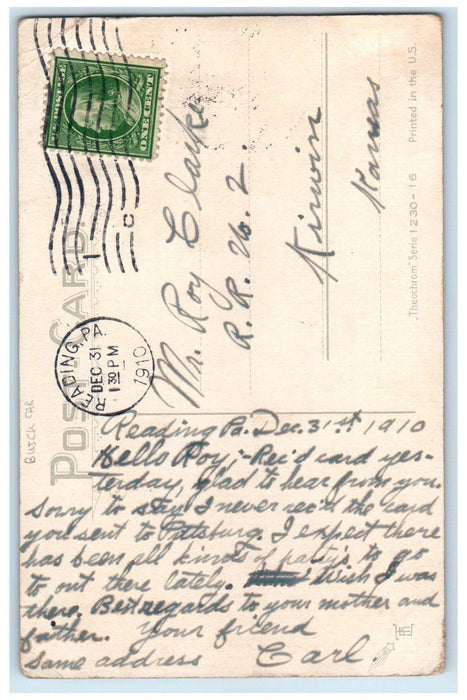 U.S. POSTAGE
ONE CENT
1
C
READING, PA.
DEC 31
1 30 PM
1910
POST CARD
Mr. Roy Clarke
R. R. No. 2.
Kirwin
Kansas
"Theochrom" Serie 1230-16 Printed in the U.S.
BUICK CAR
Reading Pa. Dec. 31st 1910
Hello Roy:- Rec'd card yes-
terday, glad to hear from you.
Sorry to say I never rec'd the card
you sent to Pittsburg. I expect there
has been all kinds of party's to go
to out there lately. Wish I was
there. Best regards to your mother and
father. Your friend
same address Carl.